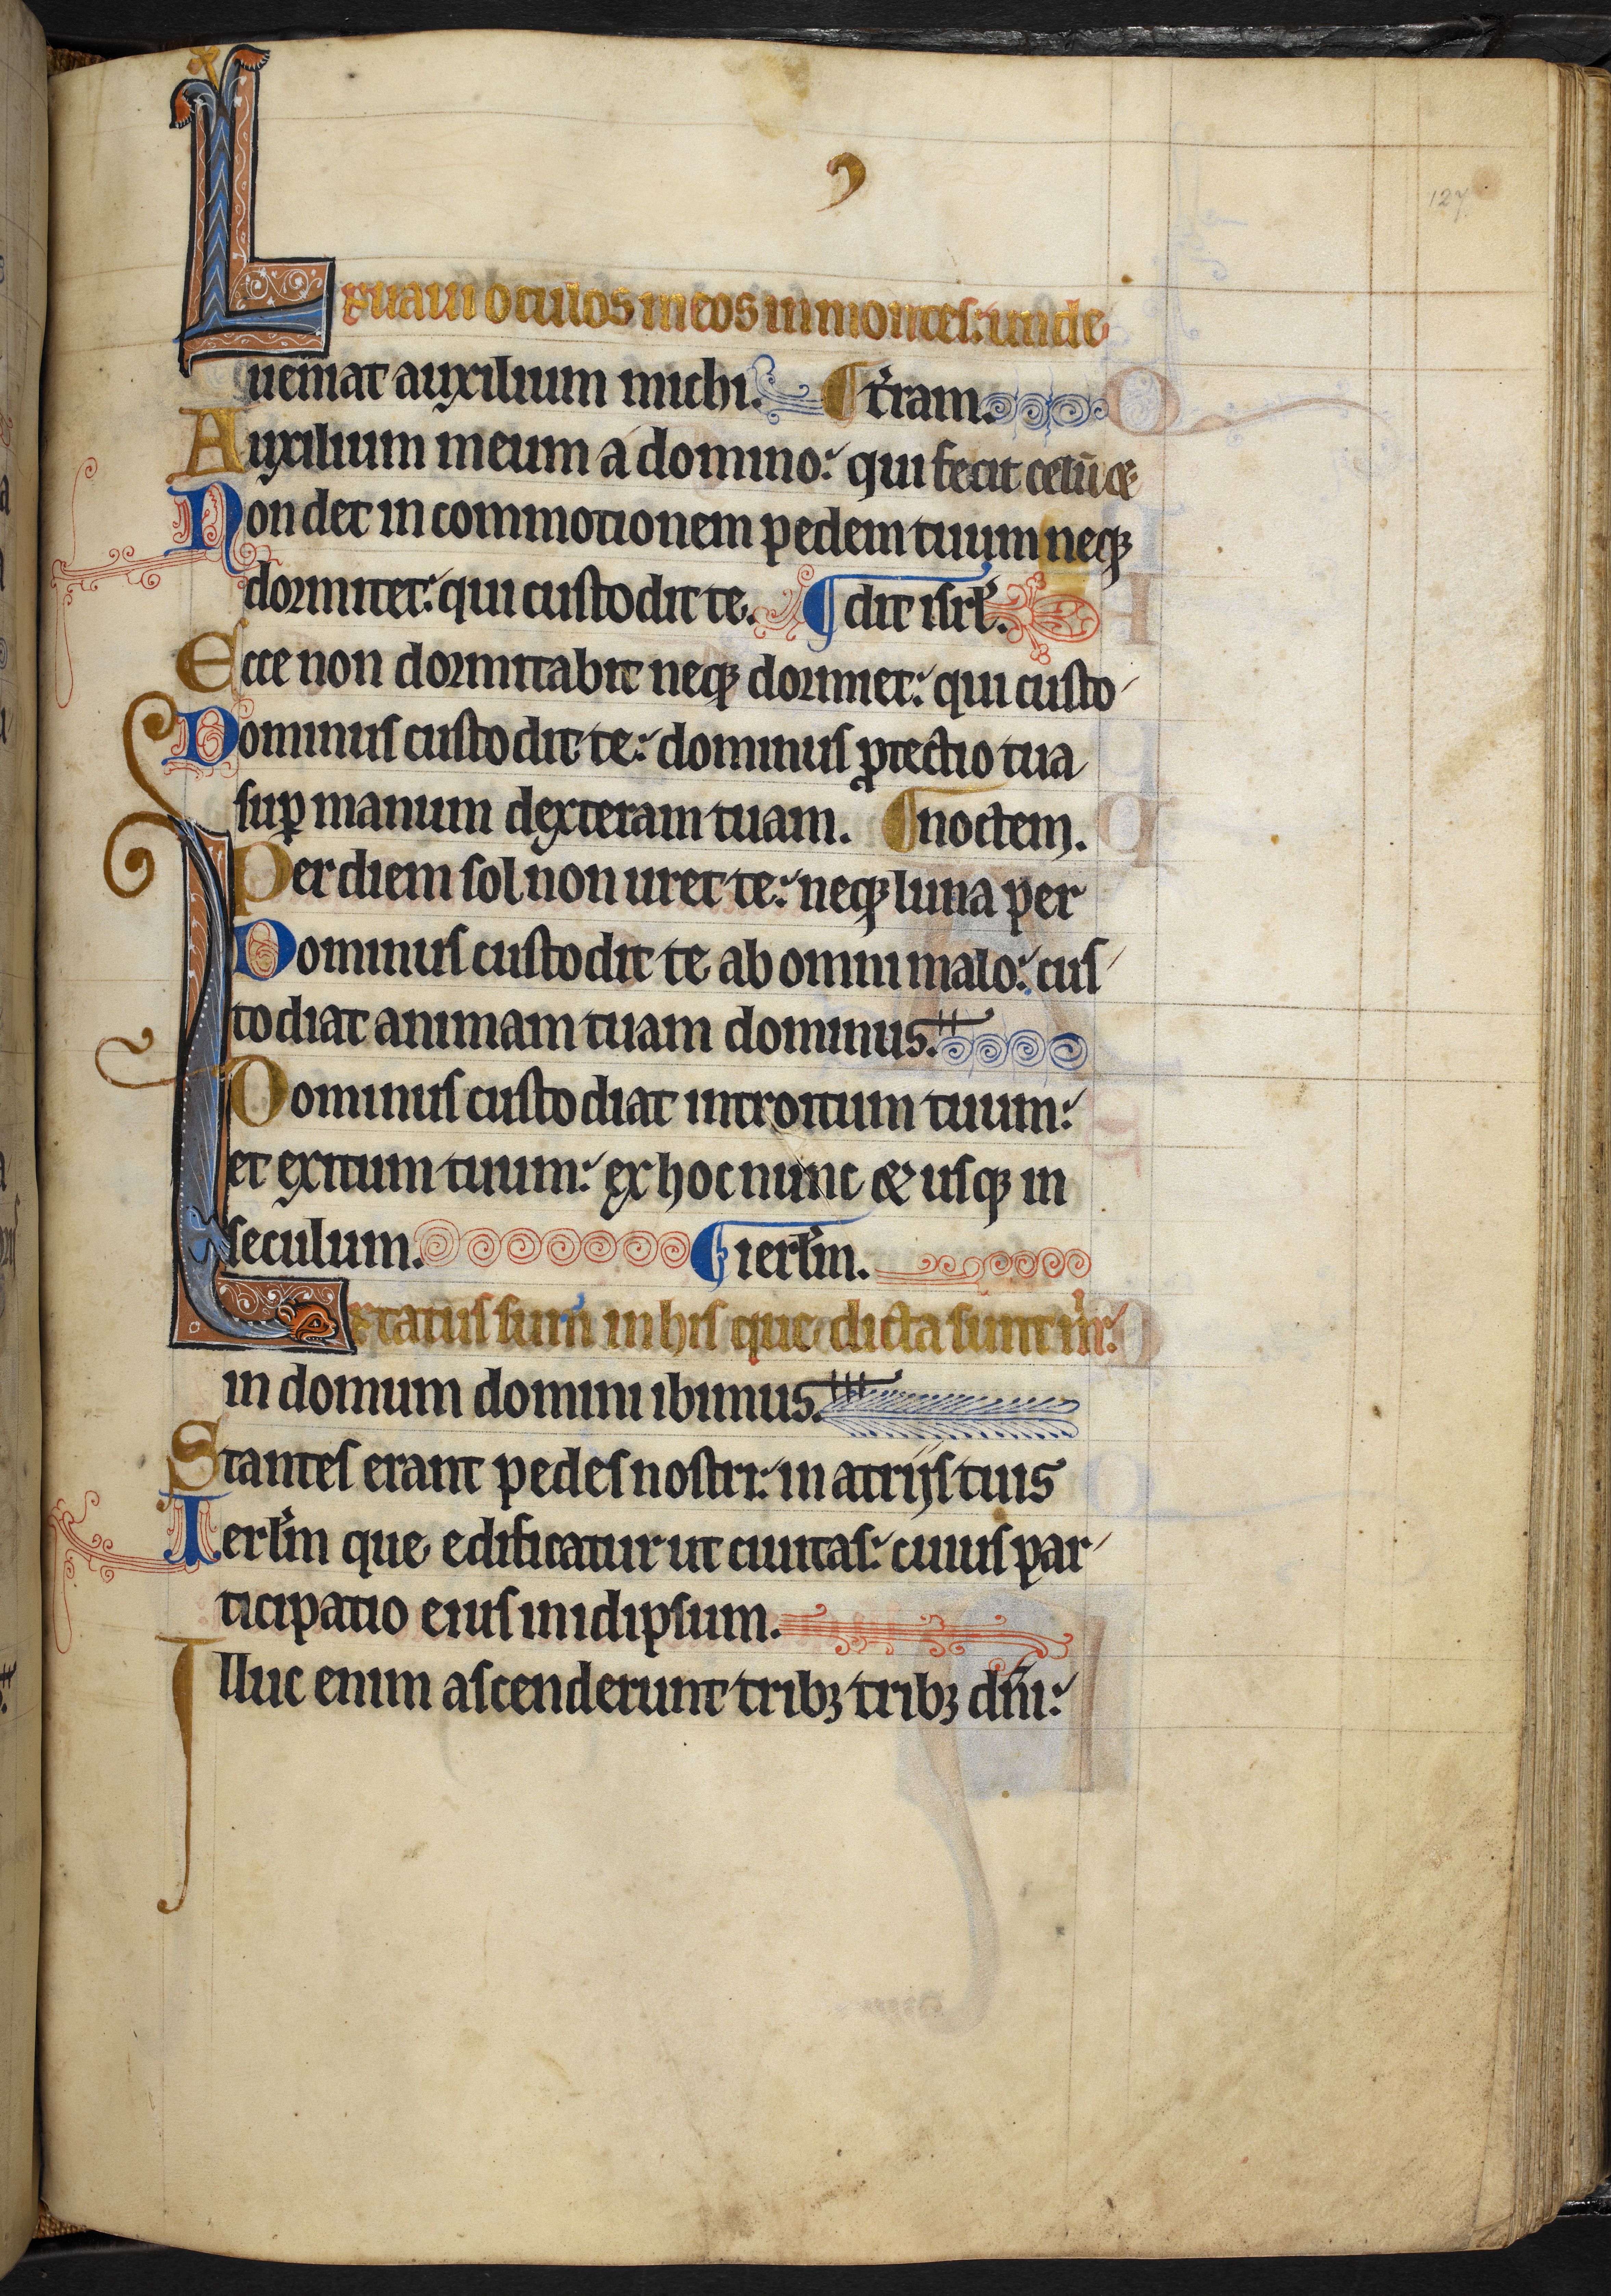 127
Leuaui oculos meos in montes: unde
ueniat auxilium michi. t̾ram.
Auxilium meum a domino: qui fecit celū &
Non det in commotionem pedem tuum neqꝫ
dormitet: qui custodit te. dit isrł.
Ecce non dormitabit neqꝫ dormiet: qui custo
Dominus custodit te: dominus ꝓtectio tua
suꝑ manum dexteram tuam. noctem.
Per diem sol non uret te: neqꝫ luna per
Dominus custodit te ab omni malo: cus
todiat animam tuam dominus.
Dominus custodiat introitum tuum:
et exitum tuum: ex hoc nunc & usqꝫ in
seculum. ierłm.
Letatus sum in his que dicta sunt m̉:
in domum domini ibimus.
Stantes erant pedes nostri: in atrijs tuis
Ierłm que edificatur ut ciuitas: cuius par
ticipatio eius in idipsum.
Illuc enim ascenderunt tribꝫ tribꝫ dn̄i: